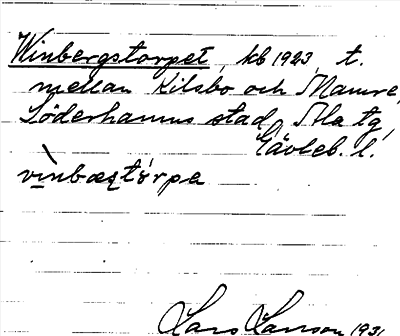 Winbergstorpet, kb 1923, t.
mellan Kilsbo och Mamre,
Söderhamns stad, Ala tg,
Gävleb. l.
vi̱nbæʂtɷrpa
Lars Larsson 1931